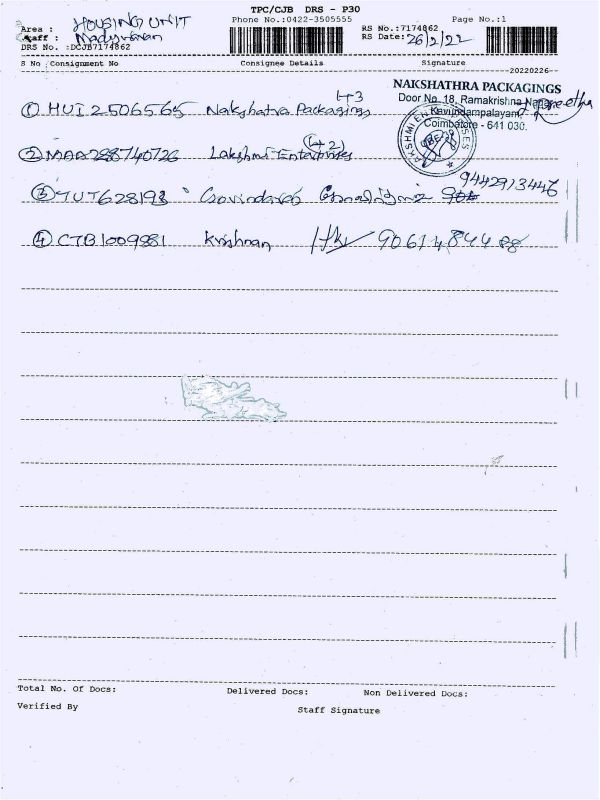 TPC/CJB DRS - P30
Phone No.:0422-3505555 Page No.:1
Area : HOUSING UNIT
Staff :
DRS No. :DCJB7174862
RS No.:7174862
RS Date: 26/2/22
S No Consignment No Consignee Details Signature
20220226
NAKSHATHRA PACKAGINGS
Door No. 18, Ramakrishna Nagar
Kavundampalayam,
Coimbatore - 641 030.
① HUI2506565 Nakshatra Packagings 1+3
② MAA288740726 Lakshmi Enterprises (1+2)
LAKSHMI ENTERPRISES
CBE-30
③ TUT628198 Govindaraj
9442913446
④ CTB1009881 Krishnan
Total No. Of Docs: Delivered Docs: Non Delivered Docs:
Verified By Staff Signature